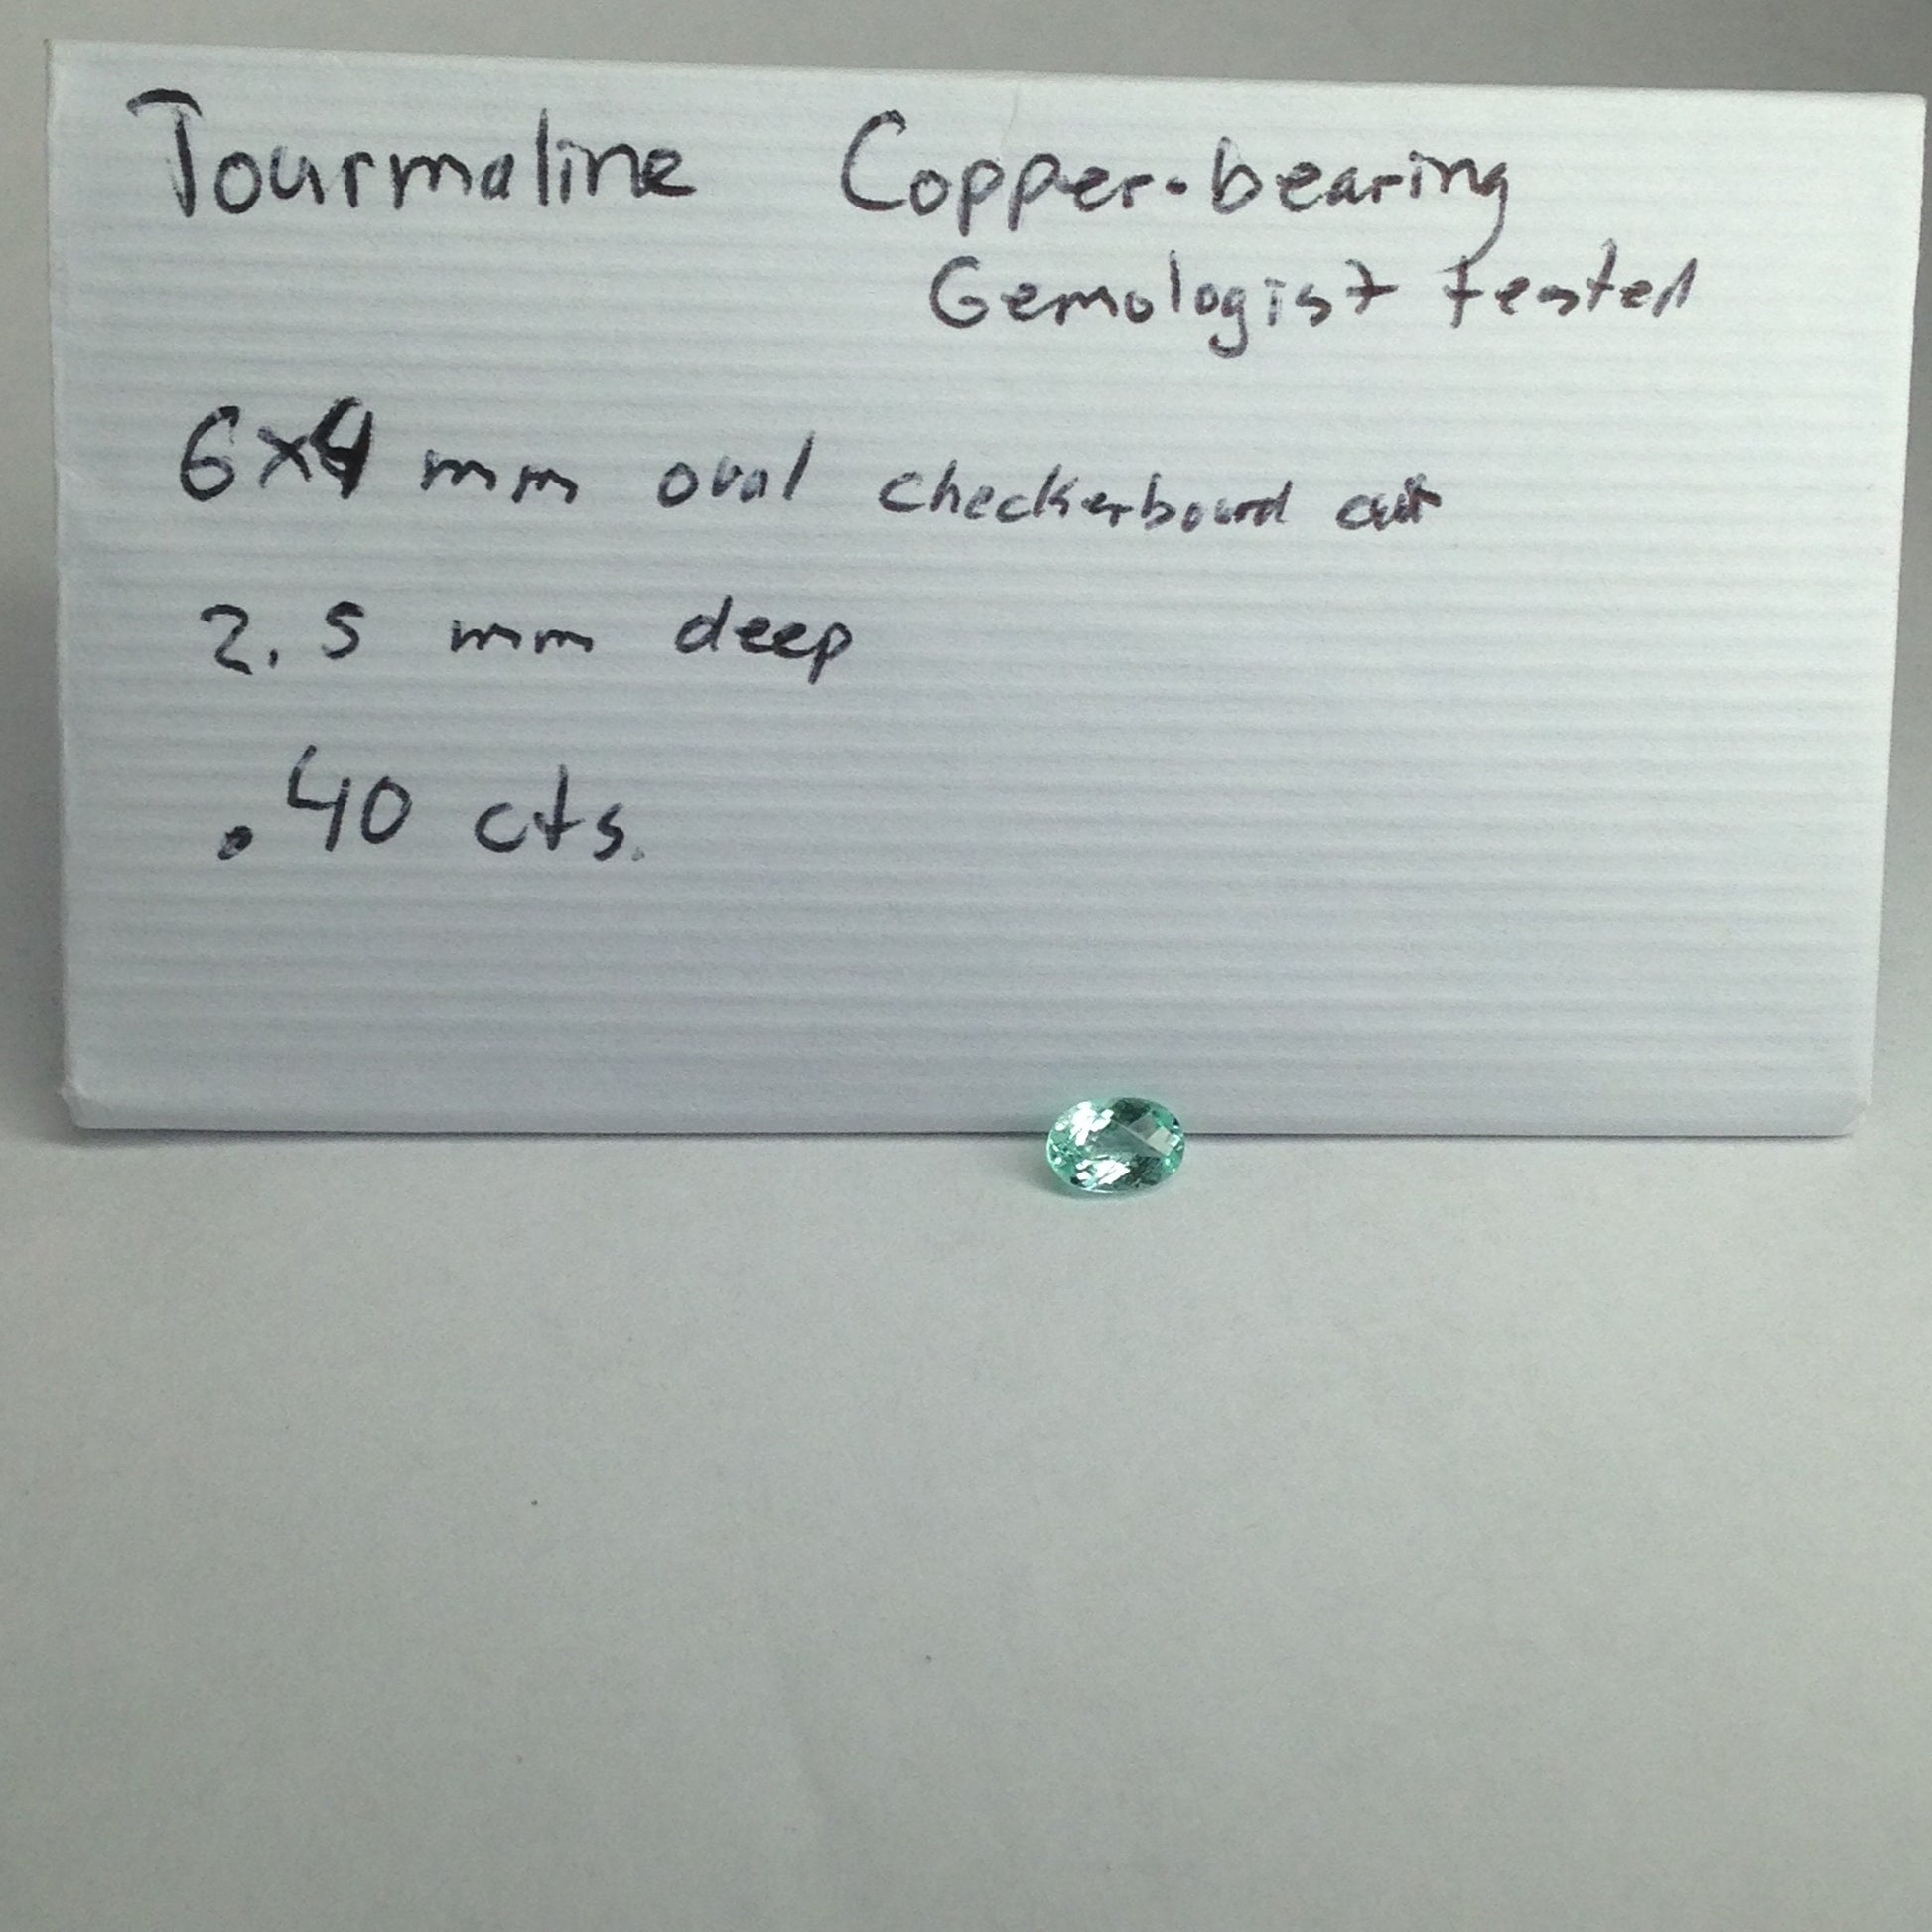 Tourmaline Copper-bearing
Gemologist tested
6x4 mm oval checkerboard cut
2.5 mm deep
.40 cts.